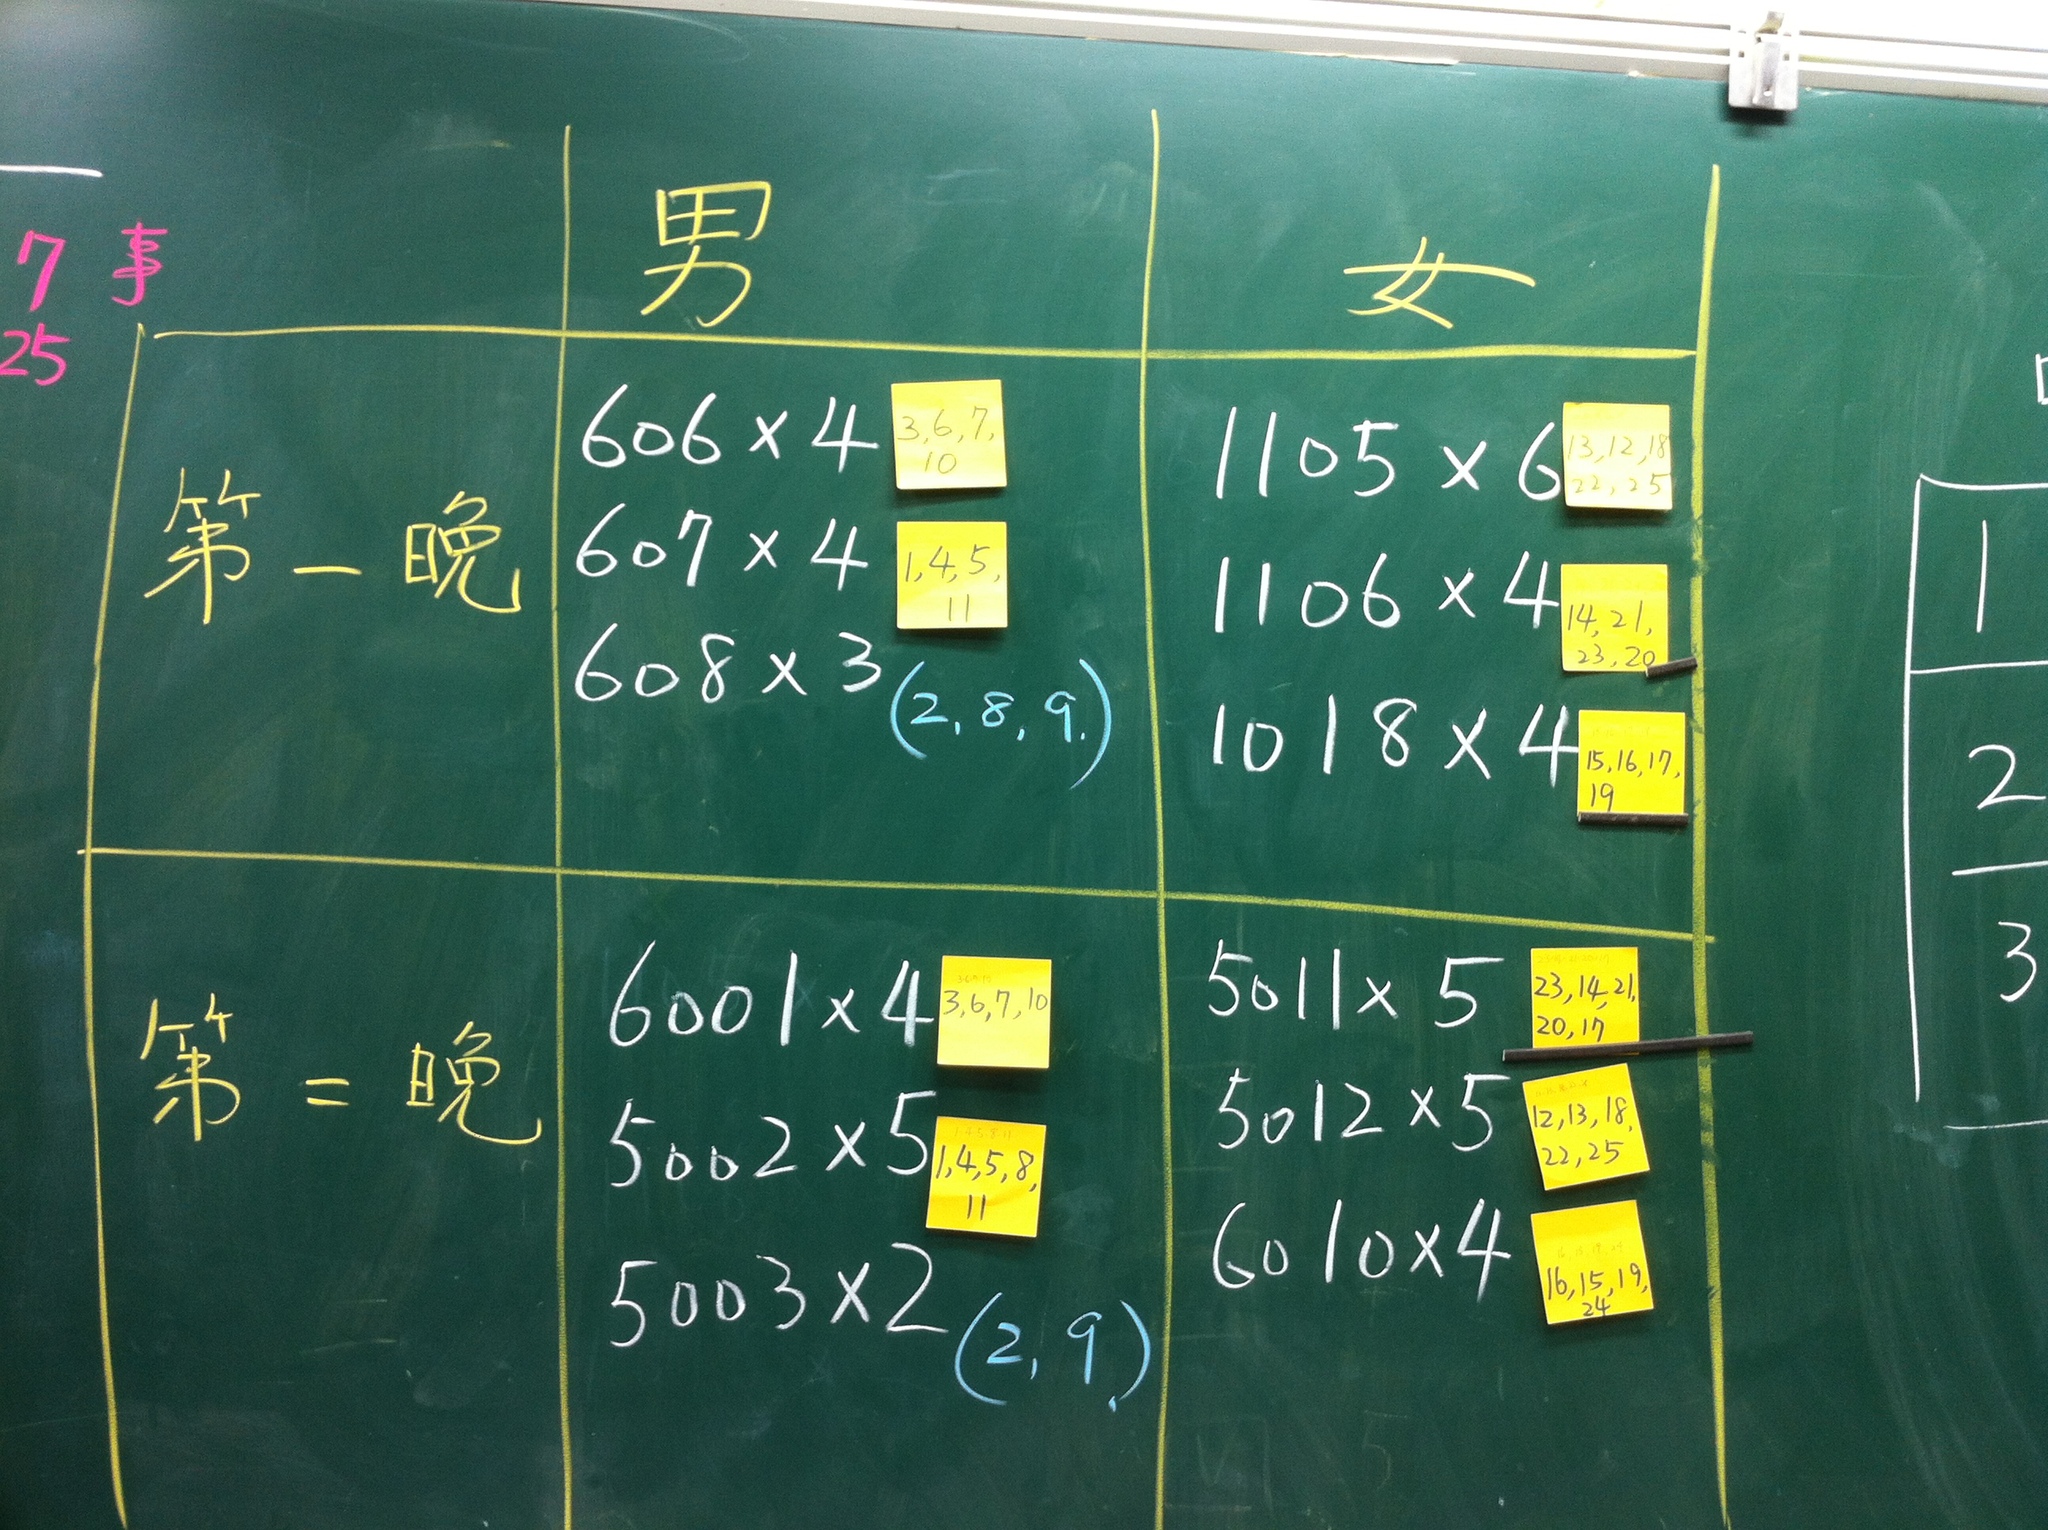 7 事
25
男
女
第一晚
606 × 4
3, 6, 7,
10
607 × 4
1, 4, 5,
11
608 × 3
(2, 8, 9.)
1105 × 6
13, 12, 18
22, 25
1106 × 4
14, 21,
23, 20
1018 × 4
15, 16, 17,
19
第二晚
6001 × 4
3, 6, 7, 10
5002 × 5
1, 4, 5, 8,
11
5003 × 2
(2, 9.)
5011 × 5
23, 14, 21,
20, 17
5012 × 5
12, 13, 18,
22, 25
6010 × 4
16, 15, 19,
24
1
2
3